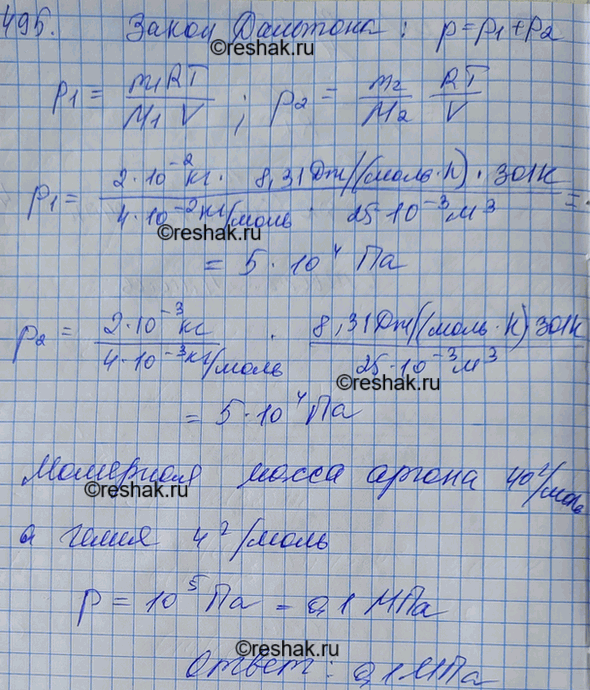 495. Закон Дальтона: p = p1 + p2
©reshak.ru
p1 = m1RT / M1 V ; p2 = m2 / M2 RT / V
p1 = 2·10⁻² кг · 8,31 Дж/(моль·К) · 301К / 4·10⁻² кг/моль · 25·10⁻³ м³ =
©reshak.ru
= 5·10⁴ Па
p2 = 2·10⁻³ кг / 4·10⁻³ кг/моль · 8,31 Дж/(моль·К) 301К / 25·10⁻³ м³
©reshak.ru
= 5·10⁴ Па
Молярная масса аргона 40 г/моль
©reshak.ru
а гелия 4 г/моль
p = 10⁵ Па = 0,1 МПа
©reshak.ru
Ответ: 0,1 МПа